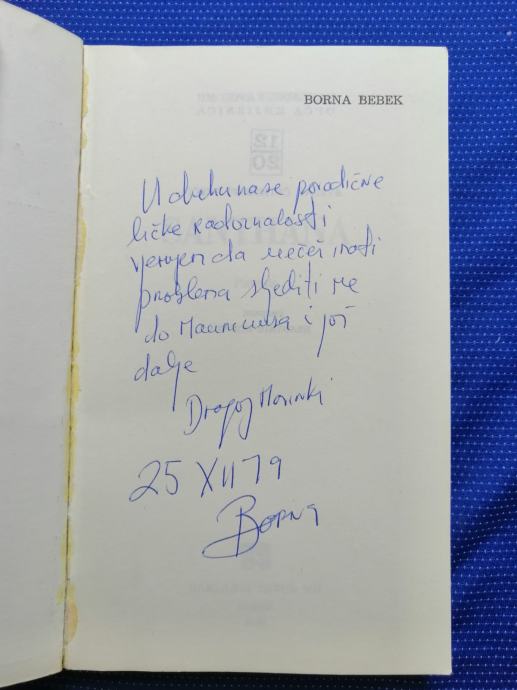 BORNA BEBEK
U duhu naše porodične
ličke radoznalosti
vjerujem da nećeš imati
problema slijediti me
do Mauriciusa i još
dalje
Dragoj Marinki
25 XII 79
Borna